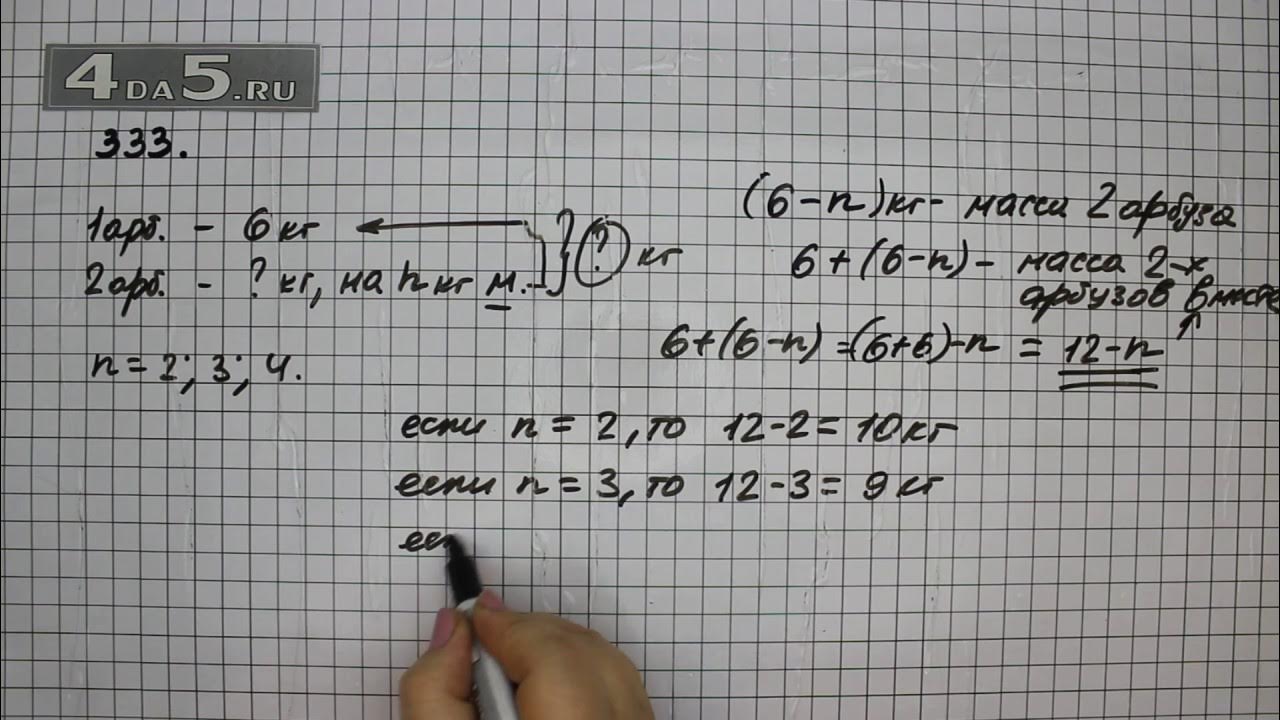 4DA5.RU
333.
1 арб. - 6 кг
2 арб. - ? кг, на n кг м. } ? кг
n = 2; 3; 4.
(6-n) кг - масса 2 арбуза
6 + (6-n) - масса 2-х
арбузов вместе
6+(6-n) = (6+6)-n = 12-n
если n = 2, то 12-2 = 10 кг
если n = 3, то 12-3 = 9 кг
ес